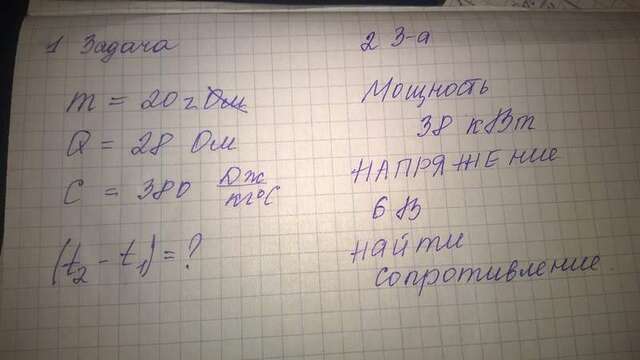 1 Задача
m = 20 г Ом
Q = 28 Ом
C = 380 Дж/кг°C
(t₂ - t₁) = ?
2 З-а
Мощность
38 кВт
НАПРЯЖЕние
6 В
НАЙТИ
сопротивление